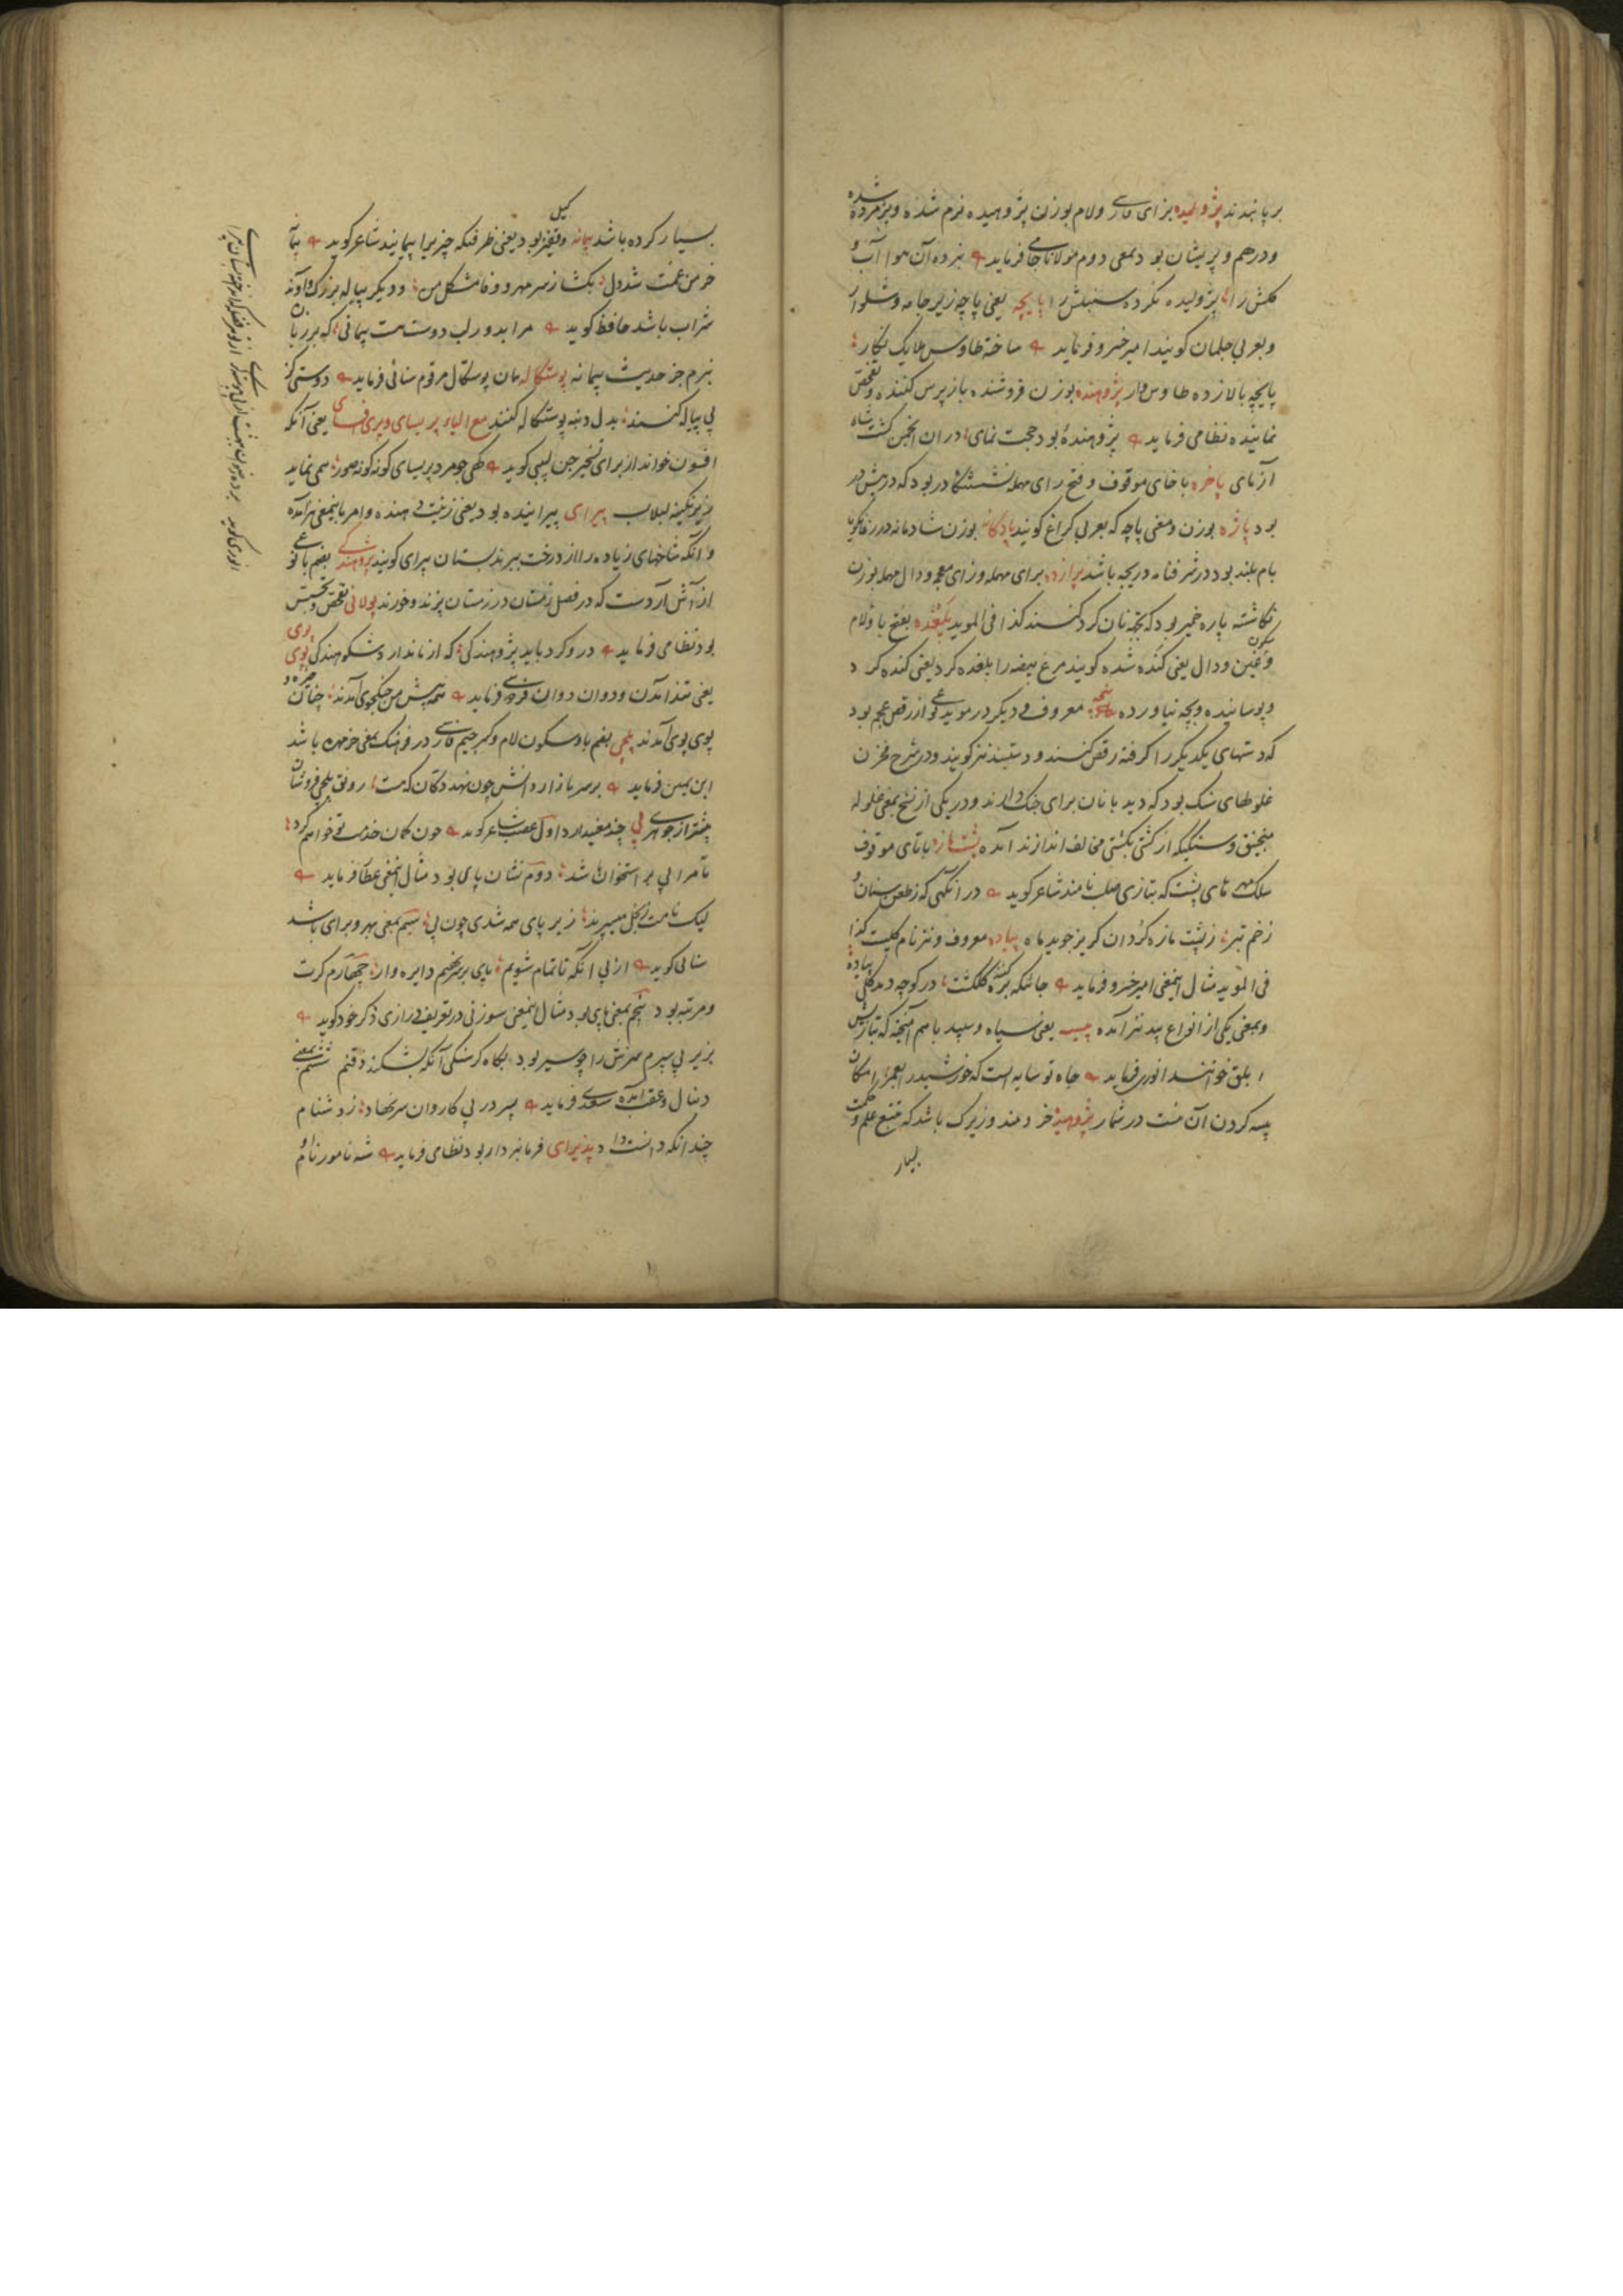 بر پا نبدند پژولیده بزای فارسی ولام بوزن پژوهیده نرم شده و پژمرده شده
و درهم و پریشان بود بمعنی دوم مولانا جامی فرماید نبرده آن هوا آب و
کلش را پژولیده نکرده سنبلش را پایچه یعنی پاچه زیر جامه و شلوار
و بعربی حلمان کویند امیر خسرو فرماید ساخته طاوس ملایک نکار
پایچه بالا زده طاوس وار پژوهنده بوزن فروشنده باز پرس کننده و تفحص
نماینده نظامی فرماید پژوهندهٔ بود حجت نمای در ان انجمن کشت شاه
آزمای پاخره با خای موقوف و فتح رای مهمله نشستنکا در بود که در پیش در
بود پاژه بوزن و معنی پاچه که بعربی کراغ کویند پادکانه بوزن شادمانه در زفانکویا
بام بلند بود در شرفنامه دریچه باشد پرازده برای مهمله وزای معجمه و دال مهمله بوزن
نکاشته پاره خمیر بود که بجهة نان کرد کنند کذا فی الموید پلغده بفتح با و لام
و سکون غین و دال یعنی کنده شده کویند مرغ بیضه را پلغده کرد یعنی کنده کرد
و پوسانیده و بچه نیاورده پنجه معروف و دیکر در موید نوعی از رقص عجم بود
که دستهای یکدیکر را کرفته رقص کنند و دستبند نیز کویند و در شرح مخزن
غلوطهای سنک بود که دیدبانان برای جنک دارند و در یکی از نسخ بمعنی غلوله
منجنیق و سنکیکه از کشتی بکشتی مخالف اندازند آمده پشتمازه با تای موقوف
سلک مهره های پشت که بتازی صلب نامند شاعر کوید در آنکهی که زطعن سنان و
زخم تبر زپشت مازه کردان کریز جوید ماه پیاده معروف و نیز نام کلیست کذا
فی الموید مثال اینمعنی امیر خسرو فرماید جائیکه بره کشته کلکشت در کوچه دمد کلی پیاده
و بمعنی یکی از انواع بید نیز آمده پیسه یعنی سیاه و سپید باهم آمیخته که بتازیش
ابلق خوانند انوری فرماید جاه تو سایه است که خورشید را بعمر امکان
پیسه کردن آن نیست در شمار پژوهیده خردمند و زیرک باشد که تتبع علم و حکمت
بسیار
بسیار کرده باشد پیمانه کیل و قفیز بود یعنی ظرفیکه چیز برا پیمایند شاعر کوید پیمانه
خرمن غمت شد دل بکشا ز سر مهر و وفا مشکل من و دیکر پیاله بزرک و آوند
شراب باشد حافظ کوید مرا بدور لب دوست هست پیمانی که بر زبان
نبرم جز حدیث پیمانه پوستکاله مان پوستکال مرقوم سنائی فرماید دوستی کز
پی پیاله کنند بدل دنبه پوستکاله کنند مع الیاء پریسای و پری فسای یعنی آنکه
افسون خواند از برای تسخیر جن لبیبی کوید کهی چو مرد پریسای کونه کونه صور همی نماید
زیر نکینه لبلاب پیرای پیراینده بود یعنی زینت دهنده و امر باینمعنی هم آمده
و آنکه شاخهای زیاده را از درخت ببرند بستان پیرای کویند پژوهندکی بضم با نوعی
از آش آردست که در فصل زمستان در زستان پزند و خورند پولانی تفحص و تجسس
بود نظامی فرماید در و کرد باید پژوهندکی که از ماندارد شکوهندکی پوی پوی
یعنی تند آمدن و دوان دوان فردوسی فرماید همه پیش من جنکجوی آمدند چنان خیره و
پوی پوی آمدند پلچی بضم با و سکون لام و کسر جیم فارسی در فرهنک بمعنی خرمهره باشد
ابن یمین فرماید بر سر بازار دانش چون نهد دکان که هست رونق پلچی فروشان
بیشتر از جوهری پی چند معنی دارد اول عصب شاعر کوید چون کمان خدمت تو خواهم کرد
تا مرا پی بر استخوان باشد دوم نشان پای بود مثال اینمعنی عطا فرماید
لیک نامت بخل میبرند زیر پای همه شدی چون پی سیم بمعنی بهر و برای باشد
سنائی کوید از پی آنکه تا تمام شویم پای بر سر نهیم دایره وار چهارم کرت
و مرتبه بود پنجم بمعنی پای بود مثال اینمعنی سوزنی در تعریف درازی ذکر خود کوید
بزیر پی سپرم سرش را چو سیر بود بکاه کرسنکی آنکه بشکند دقنم ششم بمعنی
دنبال و عقب آمده سعدی فرماید پسر در پی کاروان سرنهاد زد شنام
چندانکه دانست داد پذیرای فرمانبردار بود نظامی فرماید شه نامور نام او
انوری کوید